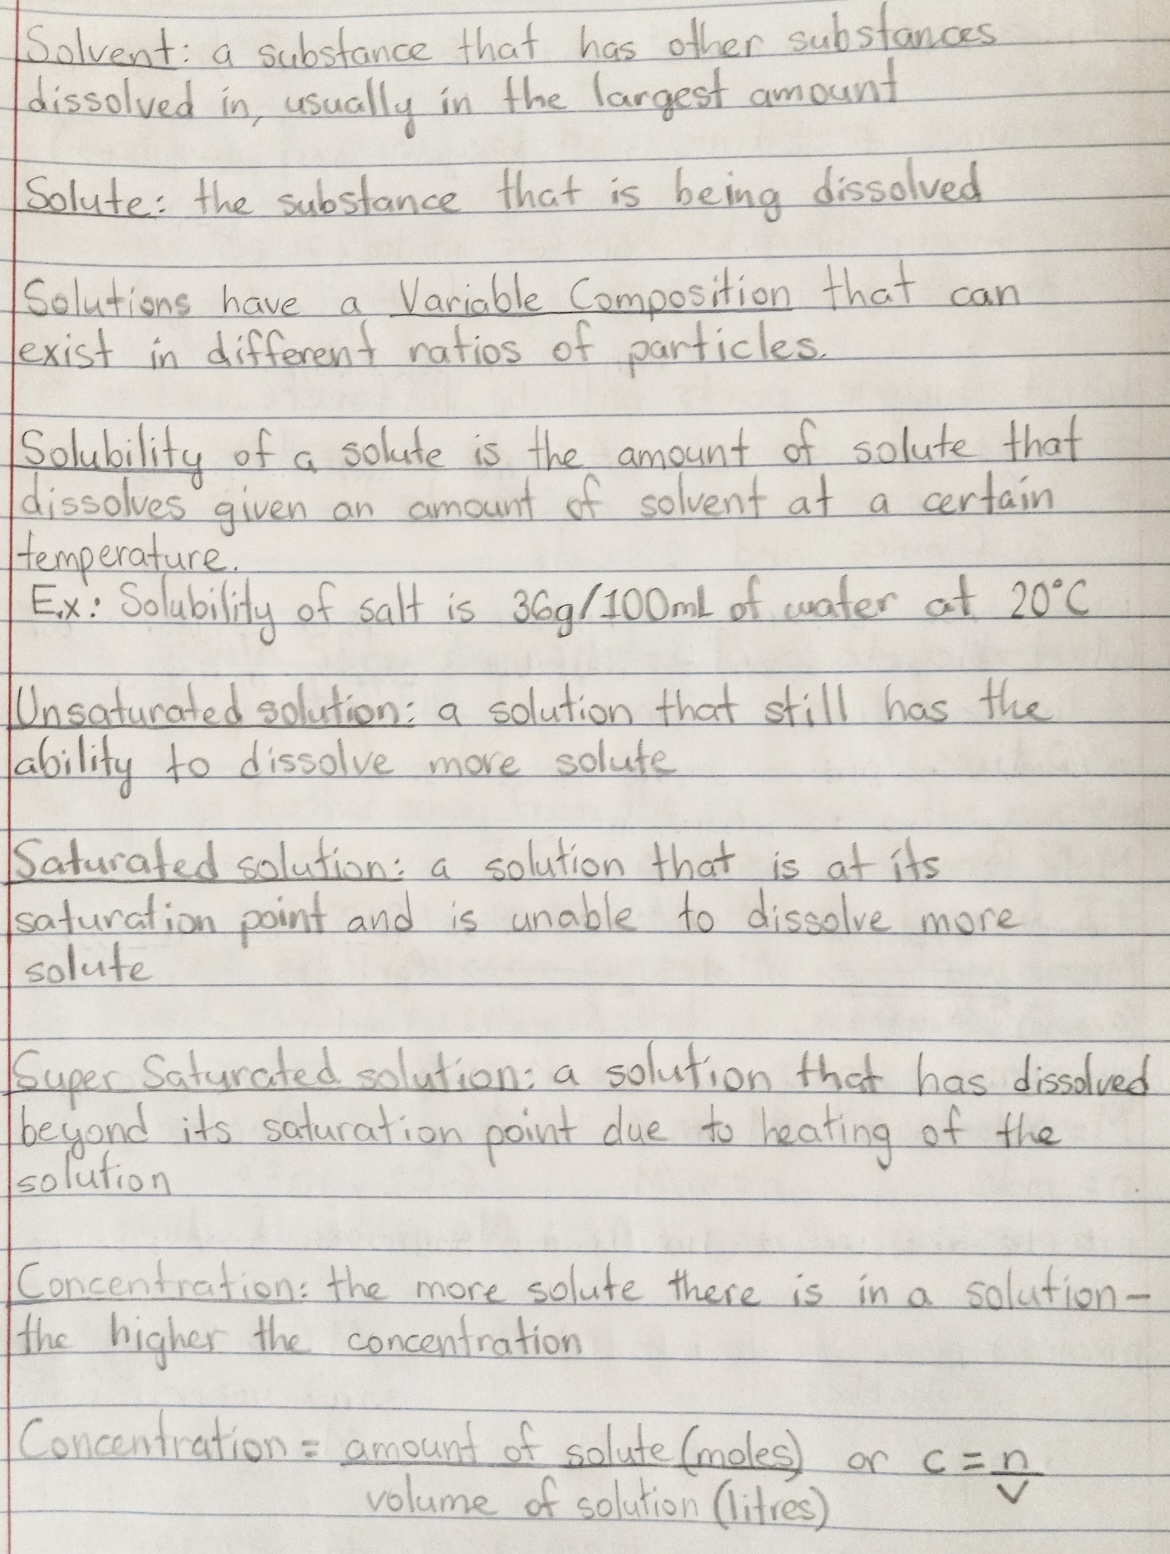 Solvent: a substance that has other substances
dissolved in, usually in the largest amount
Solute: the substance that is being dissolved
Solutions have a Variable Composition that can
exist in different ratios of particles.
Solubility of a solute is the amount of solute that
dissolves given an amount of solvent at a certain
temperature.
Ex: Solubility of salt is 36g/100mL of water at 20°C
Unsaturated solution: a solution that still has the
ability to dissolve more solute
Saturated solution: a solution that is at its
saturation point and is unable to dissolve more
solute
Super Saturated solution: a solution that has dissolved
beyond its saturation point due to heating of the
solution
Concentration: the more solute there is in a solution-
the higher the concentration
Concentration = amount of solute (moles) or c = n
volume of solution (litres) v